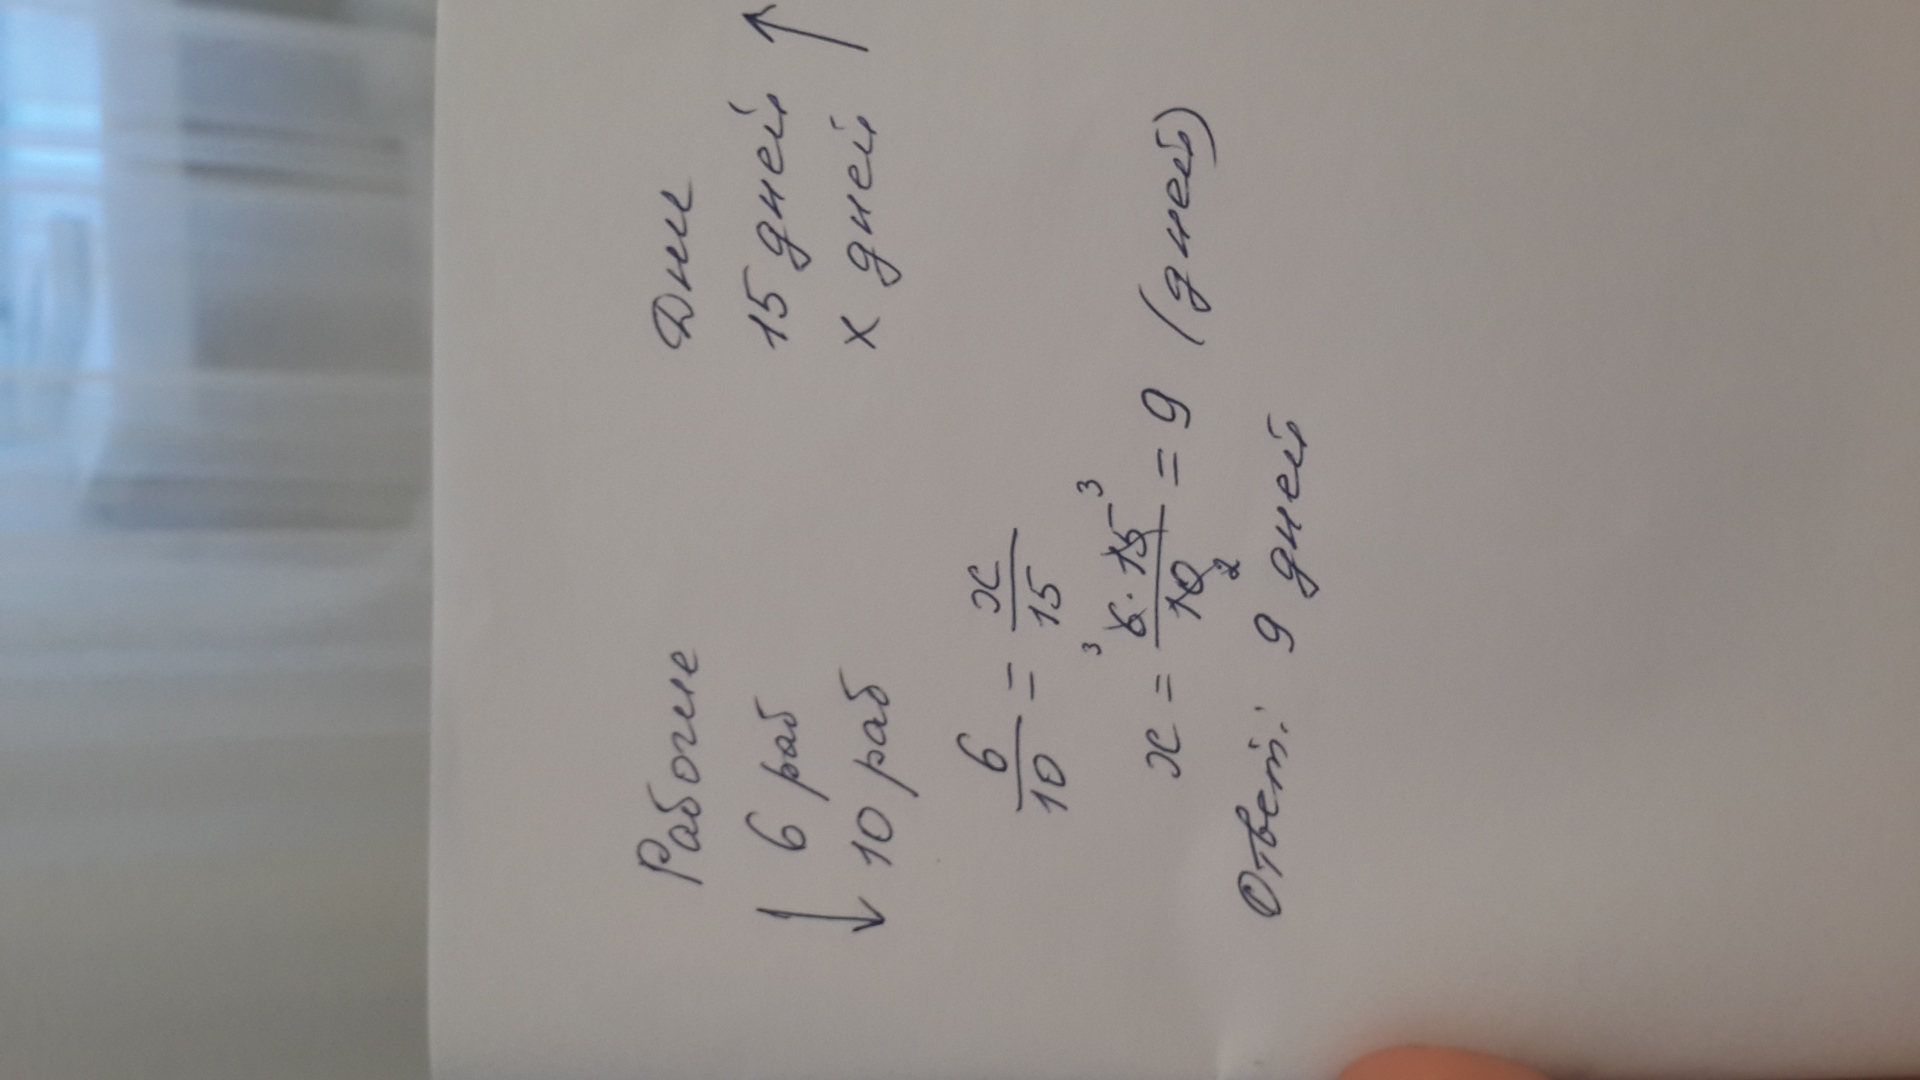 Рабочие Дни
↓ 6 раб 15 дней ↑
10 раб х дней
6/10 = x/15
x = 6 · 15 / 10 = 9 (дней) 3 3 2
Ответ: 9 дней